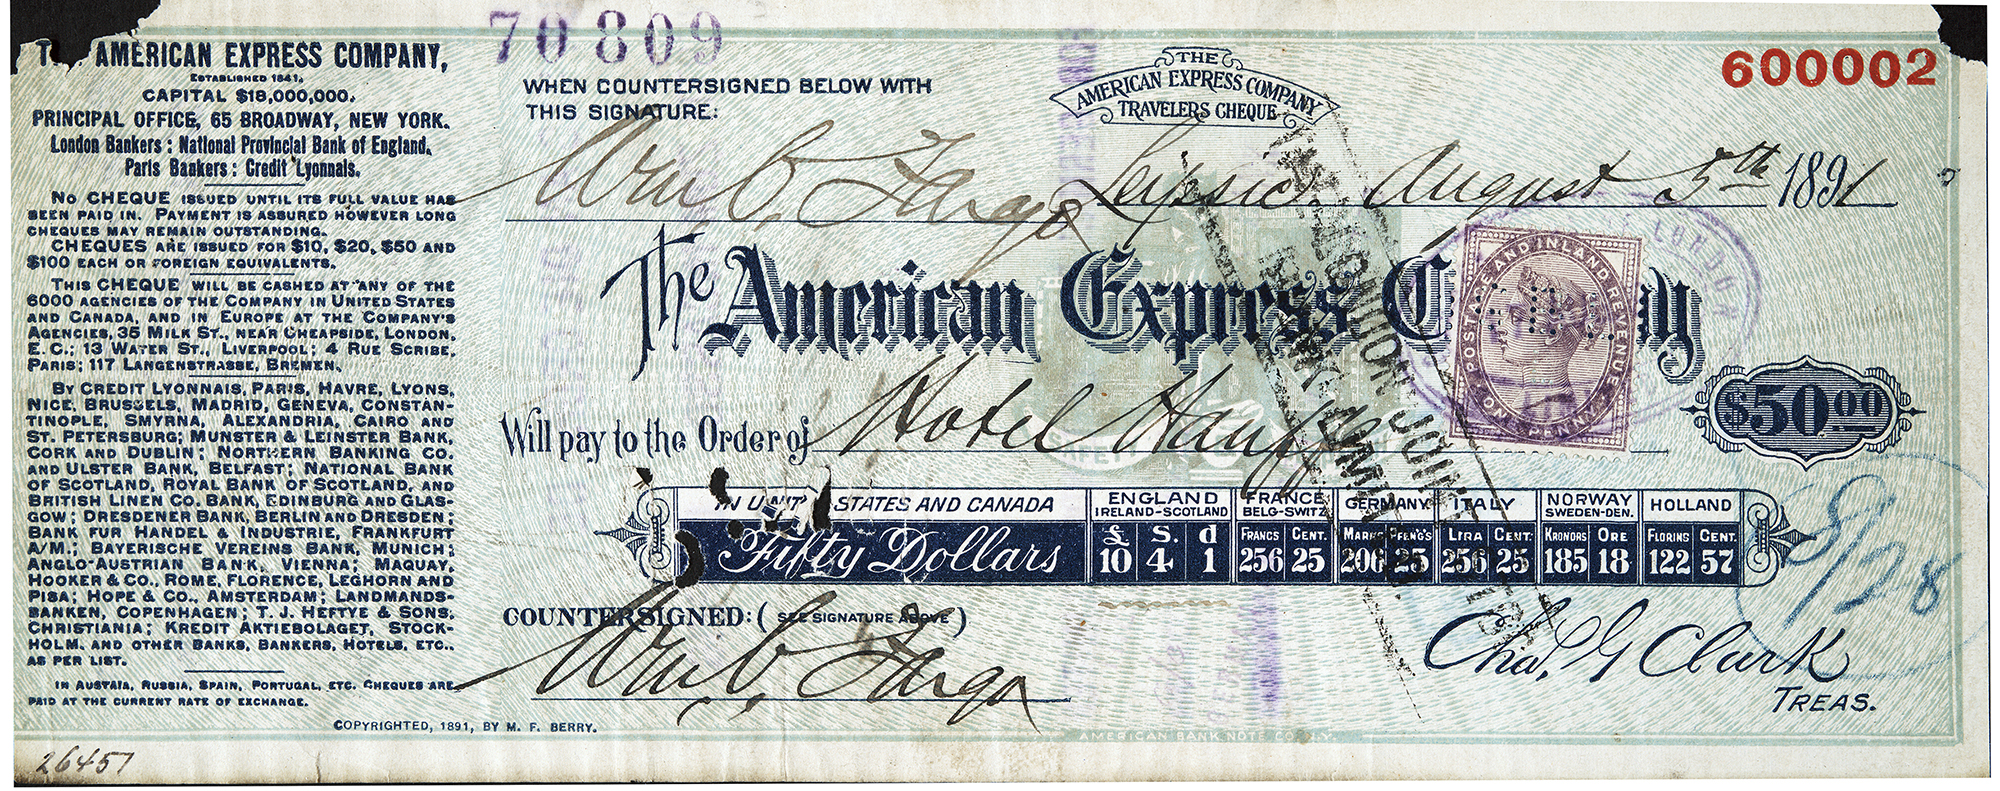 70809
600002
AMERICAN EXPRESS COMPANY,
ESTABLISHED 1841.
CAPITAL $18,000,000.
PRINCIPAL OFFICE, 65 BROADWAY, NEW YORK.
London Bankers: National Provincial Bank of England.
Paris Bankers: Credit Lyonnais.
NO CHEQUE ISSUED UNTIL ITS FULL VALUE HAS
BEEN PAID IN. PAYMENT IS ASSURED HOWEVER LONG
CHEQUES MAY REMAIN OUTSTANDING.
CHEQUES ARE ISSUED FOR $10, $20, $50 AND
$100 EACH OR FOREIGN EQUIVALENTS.
THIS CHEQUE WILL BE CASHED AT ANY OF THE
6000 AGENCIES OF THE COMPANY IN UNITED STATES
AND CANADA, AND IN EUROPE AT THE COMPANY'S
AGENCIES, 35 MILK ST., NEAR CHEAPSIDE, LONDON,
E. C.; 13 WATER ST., LIVERPOOL; 4 RUE SCRIBE,
PARIS; 117 LANGENSTRASSE, BREMEN.
BY CREDIT LYONNAIS, PARIS, HAVRE, LYONS,
NICE, BRUSSELS, MADRID, GENEVA, CONSTAN-
TINOPLE, SMYRNA, ALEXANDRIA, CAIRO AND
ST. PETERSBURG; MUNSTER & LEINSTER BANK,
CORK AND DUBLIN; NORTHERN BANKING CO.
AND ULSTER BANK, BELFAST; NATIONAL BANK
OF SCOTLAND, ROYAL BANK OF SCOTLAND, AND
BRITISH LINEN CO. BANK, EDINBURG AND GLAS-
GOW; DRESDENER BANK, BERLIN AND DRESDEN;
BANK FUR HANDEL & INDUSTRIE, FRANKFURT
A/M.; BAYERISCHE VEREINS BANK, MUNICH;
ANGLO-AUSTRIAN BANK, VIENNA; MAQUAY,
HOOKER & CO., ROME, FLORENCE, LEGHORN AND
PISA; HOPE & CO., AMSTERDAM; LANDMANDS-
BANKEN, COPENHAGEN; T. J. HEFTYE & SONS,
CHRISTIANIA; KREDIT AKTIEBOLAGET, STOCK-
HOLM, AND OTHER BANKS, BANKERS, HOTELS, ETC.,
AS PER LIST.
IN AUSTAIA, RUSSIA, SPAIN, PORTUGAL, ETC. CHEQUES ARE
PAID AT THE CURRENT RATE OF EXCHANGE.
COPYRIGHTED, 1891, BY M. F. BERRY.
26457
WHEN COUNTERSIGNED BELOW WITH
THIS SIGNATURE:
THE
AMERICAN EXPRESS COMPANY
TRAVELERS CHEQUE
Wm C. Fargo Leipsic August 5th 1891
The American Express C ny
POSTAGE AND INLAND REVENUE
ONE PENNY
LONDON
THE LONDON JOINT
BANK LIMITED
Will pay to the Order of Hotel Hauffe
$50.00
IN UNIT STATES AND CANADA
Fifty Dollars
ENGLAND
IRELAND-SCOTLAND
£ S. d
10 4 1
FRANCE
BELG-SWITZ.
FRANCS CENT.
256 25
GERMANY
MARKS PFENG'S
206 25
ITALY
LIRA CENT.
256 25
NORWAY
SWEDEN-DEN.
KRONORS ORE
185 18
HOLLAND
FLORINS CENT.
122 57
8/28
COUNTERSIGNED: (SEE SIGNATURE ABOVE)
Wm C. Fargo
Chas. G Clark
TREAS.
AMERICAN BANK NOTE CO. N.Y.